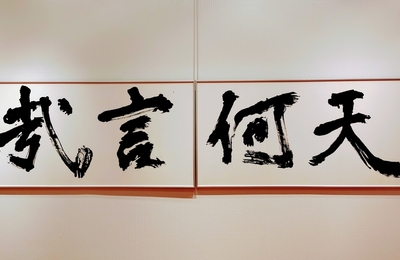 天何言哉